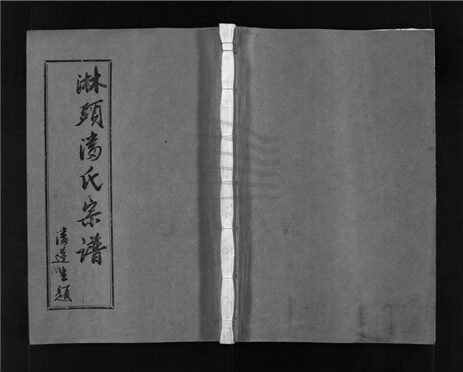 淋頭潘氏宗谱
潘道生題